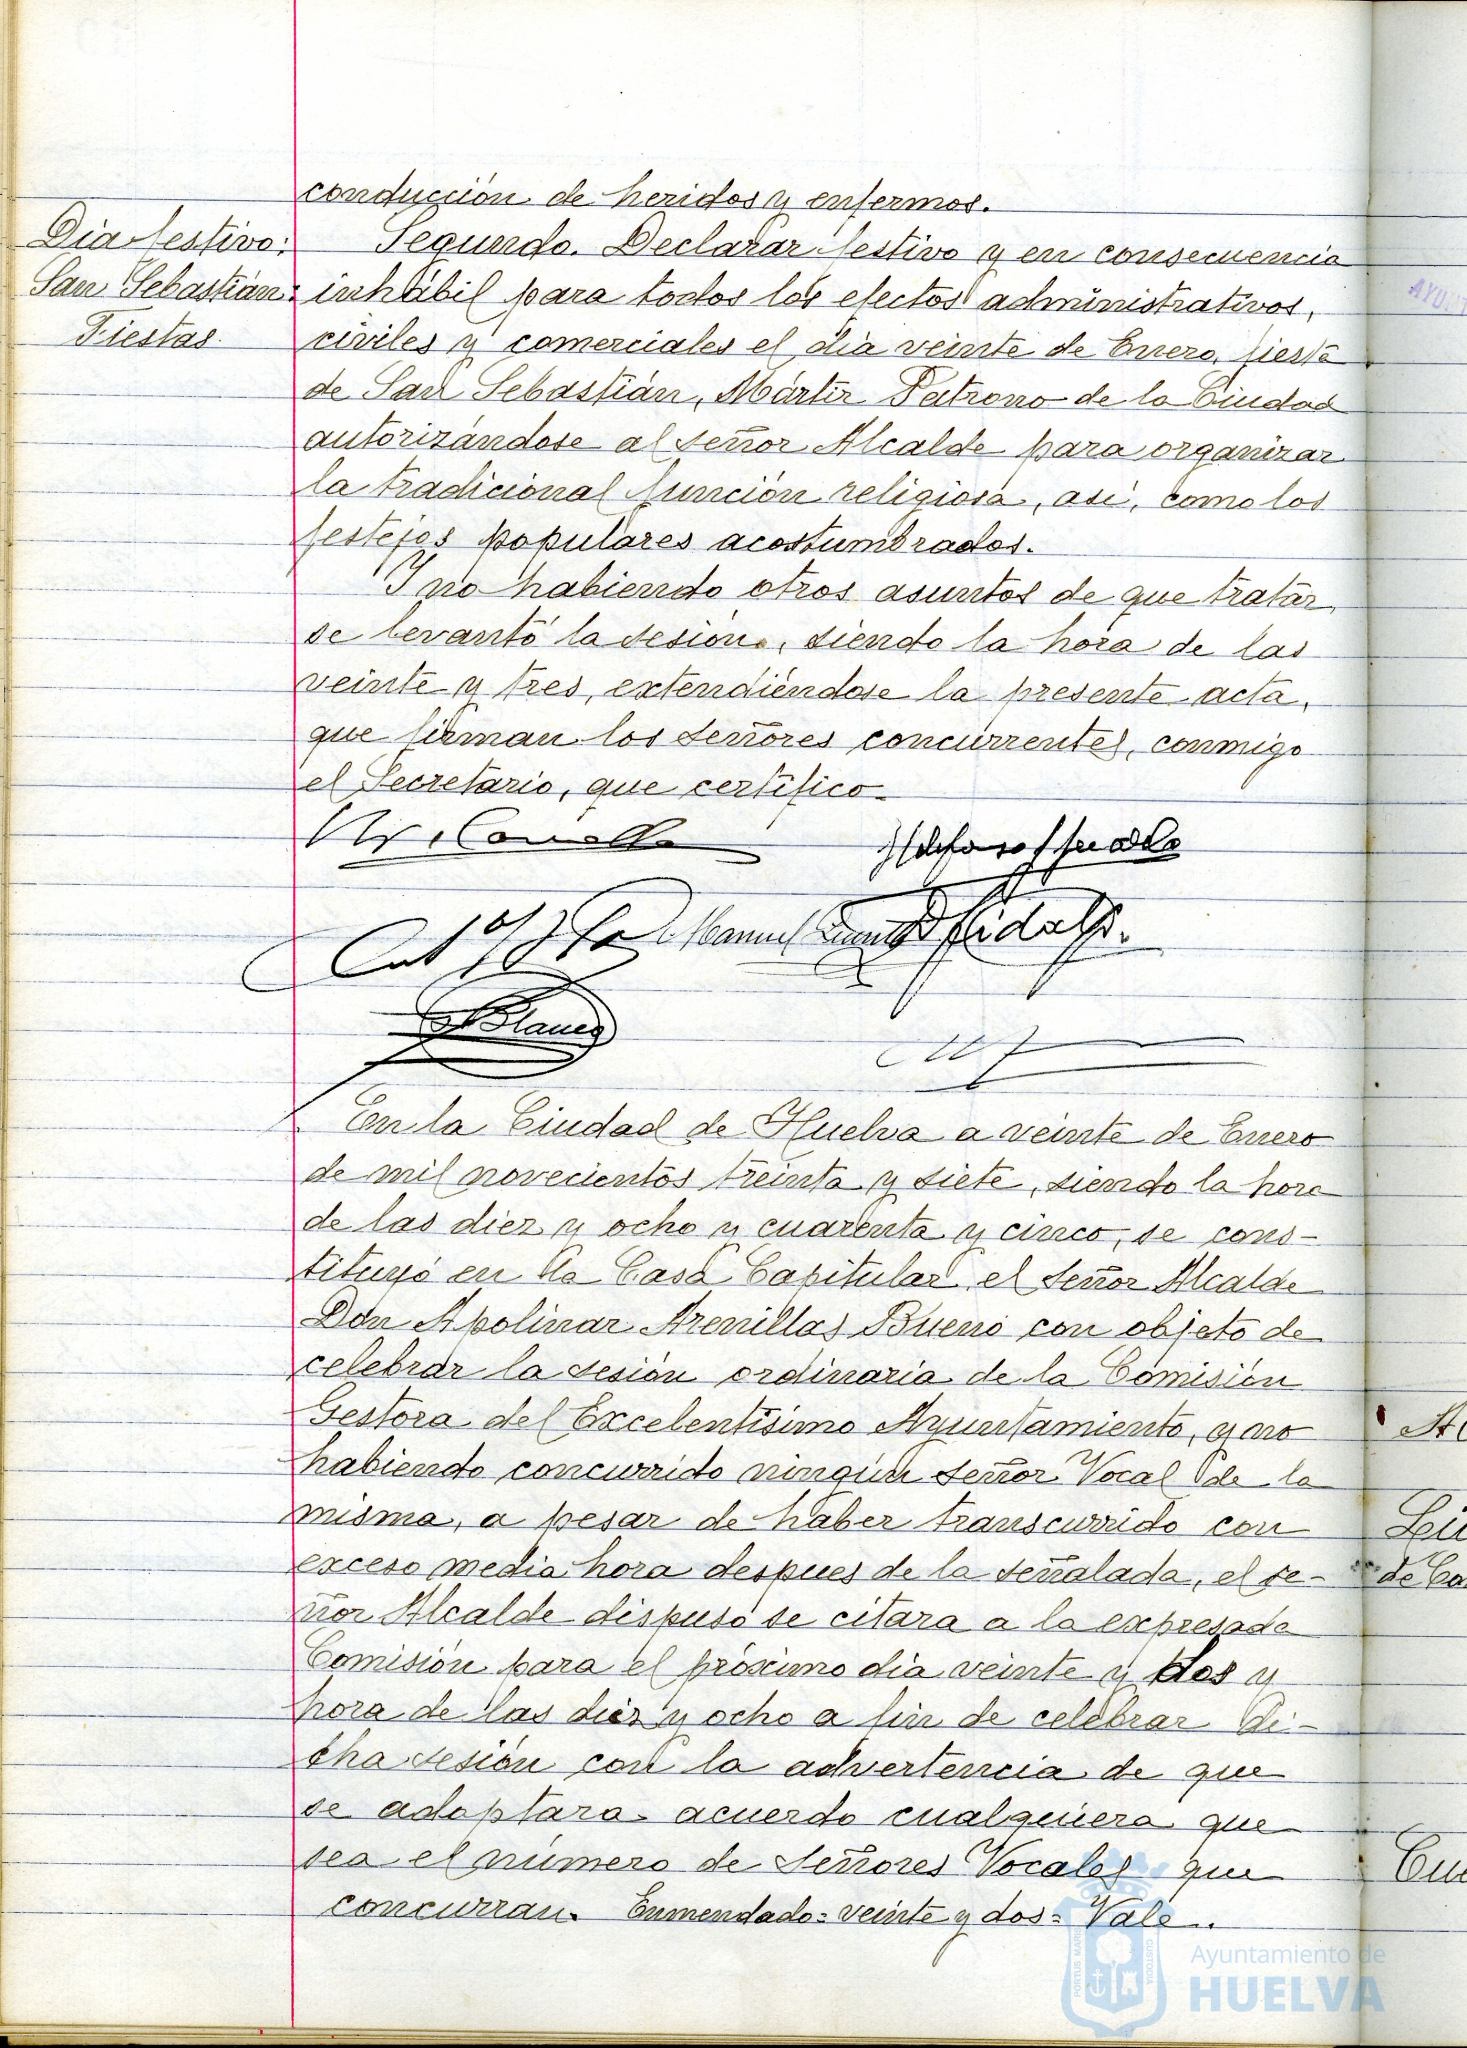 conducción de heridos y enfermos.
Dia festivo:
San Sebastián:
Fiestas.
Segundo. Declarar festivo y en consecuencia
inhábil para todos los efectos administrativos,
civiles y comerciales el dia veinte de Enero, fiesta
de San Sebastián, Mártir Patrono de la Ciudad
autorizándose al señor Alcalde para organizar
la tradicional función religiosa, asi, como los
festejos populares acostumbrados.
Y no habiendo otros asuntos de que tratar,
se levantó la sesión, siendo la hora de las
veinte y tres, extendiéndose la presente acta,
que firman los señores concurrentes, conmigo
el Secretario, que certifico.
Manuel
Blanco
En la Ciudad de Huelva a veinte de Enero
de mil novecientos treinta y siete, siendo la hora
de las diez y ocho y cuarenta y cinco, se cons-
tituyó en la Casa Capitular el señor Alcalde
Don Apolinar Arenillas Bueno con objeto de
celebrar la sesión ordinaria de la Comisión
Gestora del Excelentísimo Ayuntamiento, y no
habiendo concurrido ningún señor Vocal de la
misma, a pesar de haber transcurrido con
exceso media hora despues de la señalada, el se-
ñor Alcalde dispuso se citara a la expresada
Comisión para el próximo dia veinte y dos y
hora de las diez y ocho a fin de celebrar di-
cha sesión con la advertencia de que
se adoptara acuerdo cualquiera que
sea el número de señores Vocales que
concurran. Enmendado = veinte y dos = Vale.
Ayuntamiento de
HUELVA